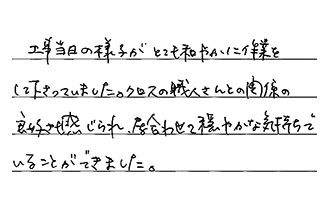 工事当日の様子が とても和やかに作業を
して下さっていました。クロスの職人さんとの関係の
良好さも感じられ、居合わせて穏やかな気持ちで
いることができました。